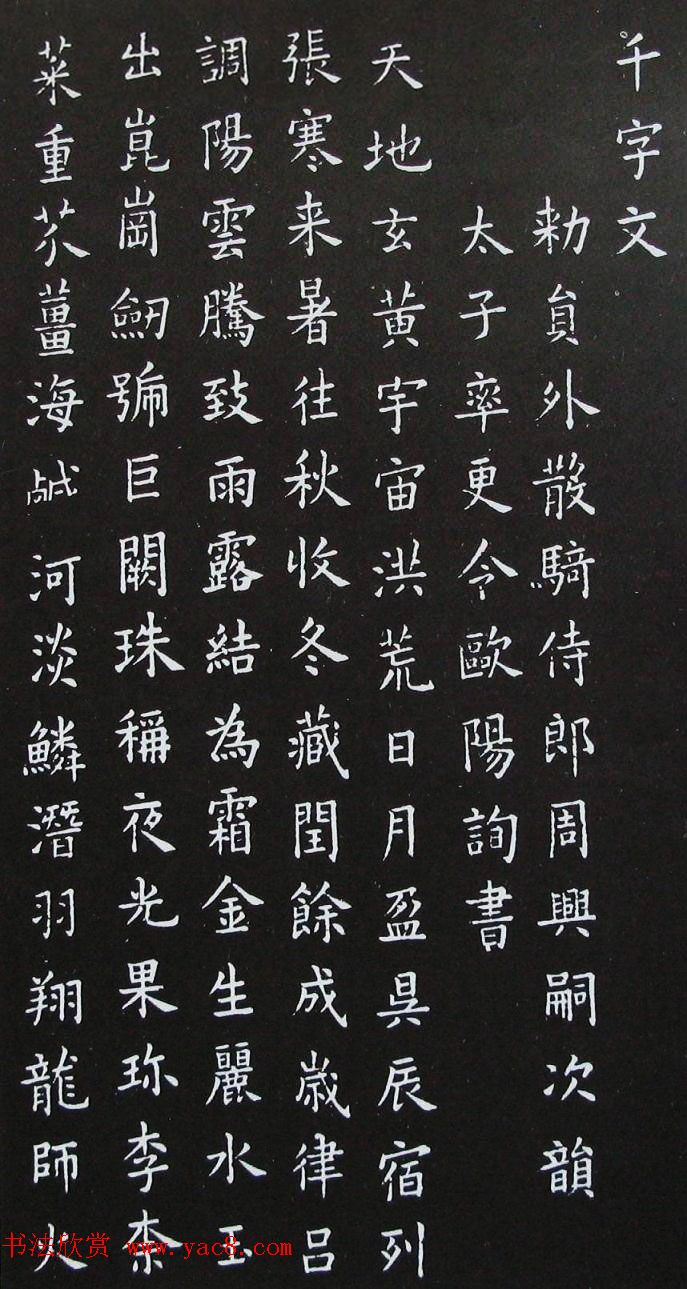 千字文
勅員外散騎侍郎周興嗣次韻
太子率更令歐陽詢書
天地玄黃宇宙洪荒日月盈昃辰宿列
張寒来暑往秋收冬藏閏餘成歲律呂
調陽雲騰致雨露結為霜金生麗水玉
出崑崗劒號巨闕珠稱夜光果珎李柰
菜重芥薑海鹹河淡鱗潛羽翔龍師火
书法欣赏 www.yac8.com